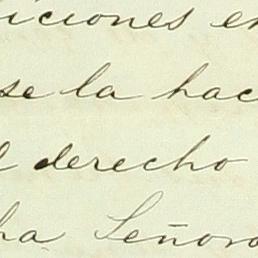 iciones en
se la hac
l derecho
ha Señora